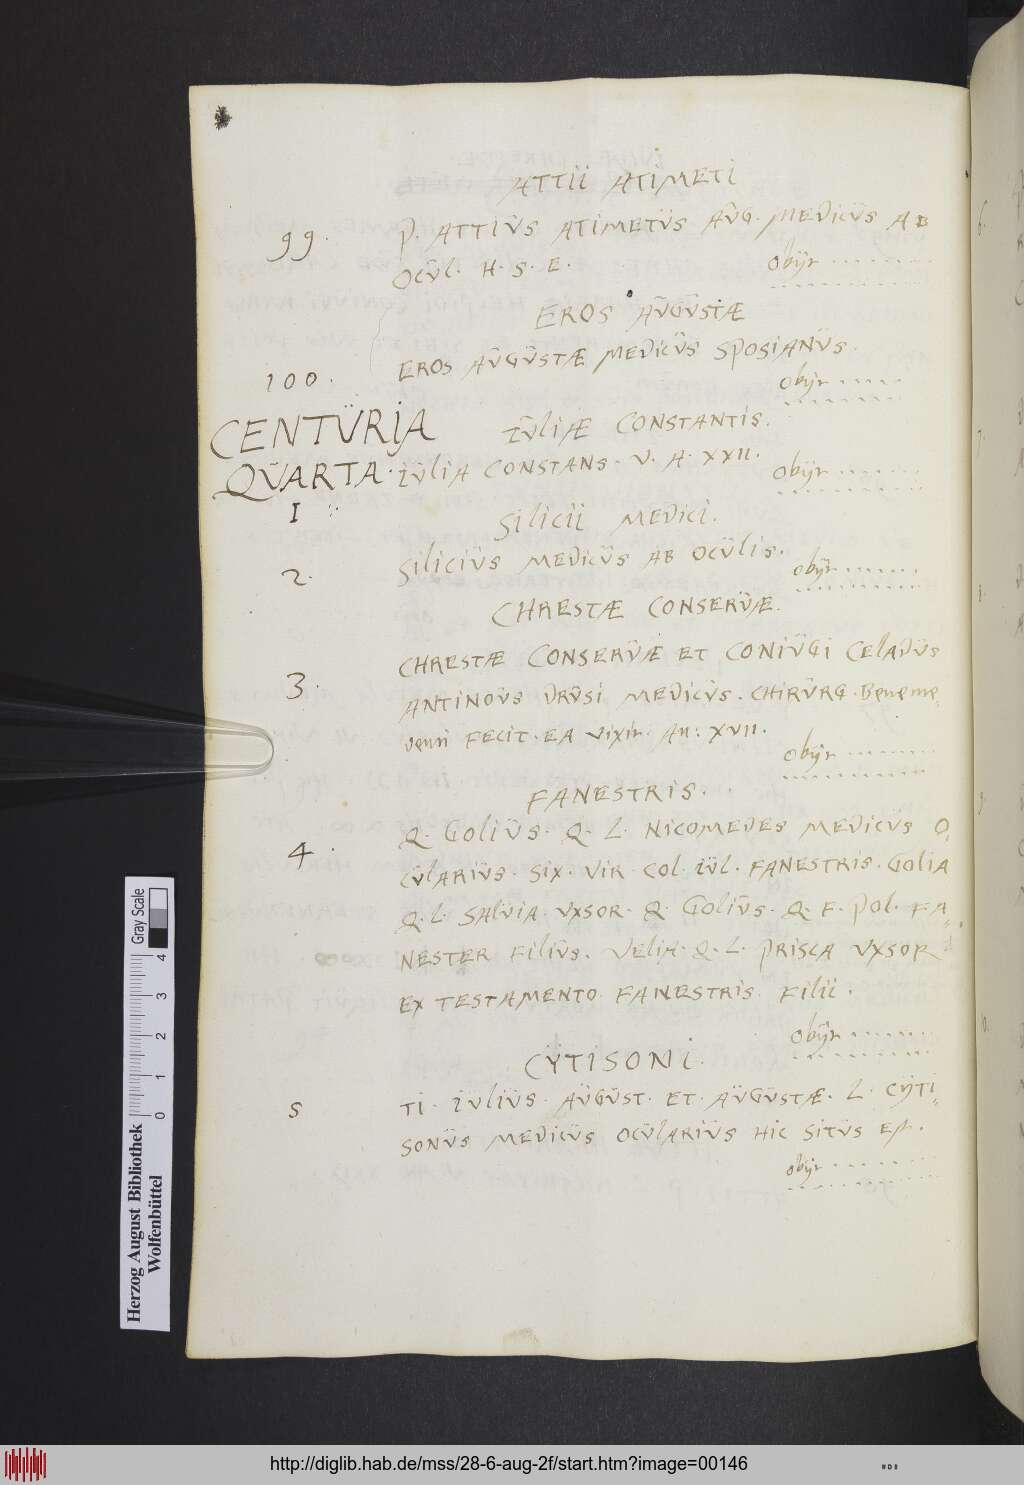 ATTII ATIMETI
99. P. ATTIŪS ATIMETŪS AŪG. MEDICŪS AB
OCŪL. H. S. E.
obÿt ........
EROS AŪGŪSTÆ
100. EROS AŪGŪSTÆ MEDICŪS SPOSIANŪS.
obÿt ......
CENTŪRIA
QŪARTA.
IŪLIÆ CONSTANTIS.
I IŪLIA CONSTANS. V. A. XXII.
obÿt ........
SILICII MEDICI.
2. SILICIŪS MEDICŪS AB OCŪLIS.
obÿt ......
CHRESTÆ CONSERŪÆ.
3. CHRESTÆ CONSERŪÆ ET CONIŪGI CELADŪS
ANTINOŪS DRŪSI MEDICŪS. CHIRŪRG. Beneme-
renti FECIT. EA vixit. An: XVII.
obÿt ........
FANESTRIS.
4. Q. GOLIŪS. Q. L. NICOMEDES MEDICŪS O-
CŪLARIŪS. SIX. VIR COL. IŪL. FANESTRIS. GOLIA
Q. L. SALVIA. VXSOR. Q. GOLIŪS. Q. F. POL. FA-
NESTER FILIŪS. VELIA. Q. L. PRISCA VXSOR
EX TESTAMENTO FANESTRIS FILII.
obÿt ......
CŸTISONI.
5 TI. IŪLIŪS. AŪGŪST. ET. AŪGŪSTÆ. L. CŸTI-
SONŪS MEDICŪS OCŪLARIŪS HIC SITŪS Est.
obÿt ......
Gray Scale
0 1 2 3 4
Herzog August Bibliothek
Wolfenbüttel
http://diglib.hab.de/mss/28-6-aug-2f/start.htm?image=00146